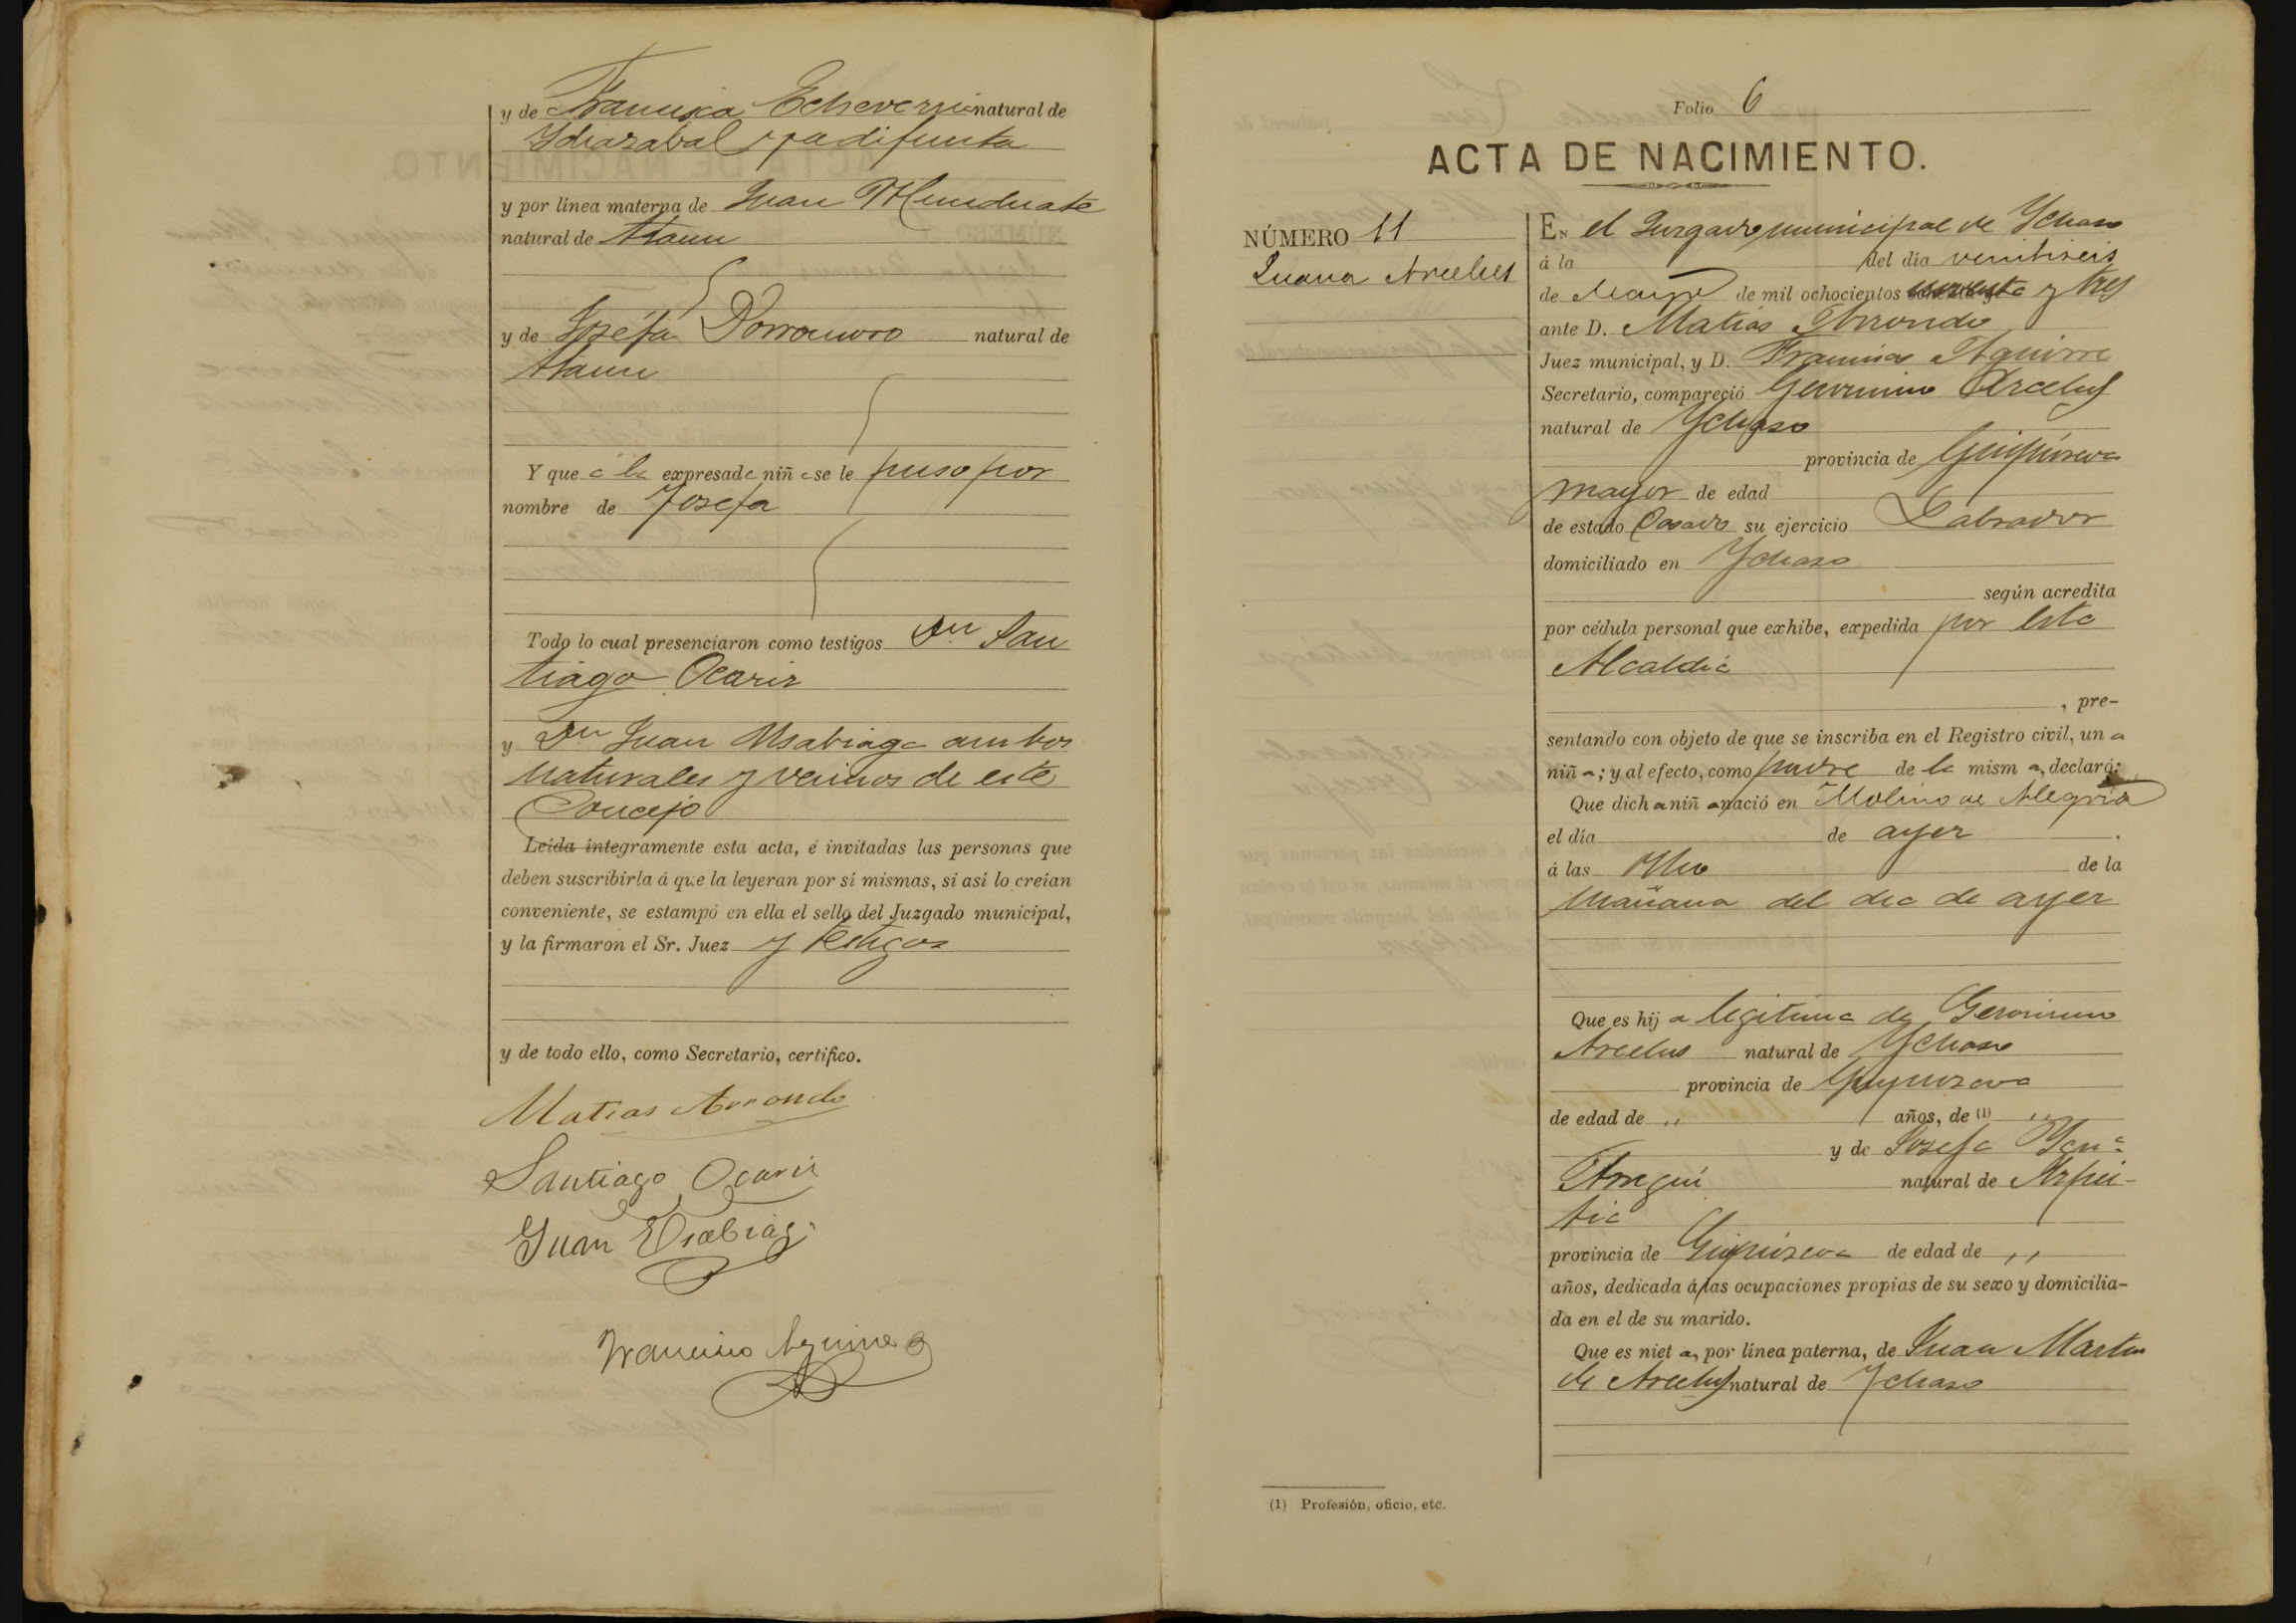 y de Francisca Echeverria natural de
Ydiazabal ya difunta
y por línea materna de Juan Munduate
natural de Ataun
y de Josefa Dorronsoro natural de
Ataun
Y que á la expresada niña se le puso por
nombre de Josefa
Todo lo cual presenciaron como testigos Dn San
tiago Ocariz
y Dn Juan Usabiaga ambos
naturales y vecinos de este
Concejo
Leida íntegramente esta acta, é invitadas las personas que
deben suscribirla á que la leyeran por sí mismas, si así lo creían
conveniente, se estampó en ella el sello del Juzgado municipal,
y la firmaron el Sr. Juez y testigos
y de todo ello, como Secretario, certifico.
Matias Arrondo
Santiago Ocariz
Juan Usabiaga
Francisco Aguirre
Folio 6
ACTA DE NACIMIENTO.
NÚMERO 11
Juana Arcelus
En el Juzgado municipal de Ychaso
á la del día veintiseis
de Mayo de mil ochocientos noventa y tres
ante D. Matias Arrondo
Juez municipal, y D. Francisco Aguirre
Secretario, compareció Geronimo Arcelus
natural de Ychaso
provincia de Guipúzcoa
mayor de edad
de estado Casado su ejercicio Labrador
domiciliado en Ychaso
según acredita
por cédula personal que exhibe, expedida por esta
Alcaldia
, pre-
sentando con objeto de que se inscriba en el Registro civil, una
niña; y al efecto, como padre de la misma, declaró:
Que dicha niña nació en Molino de Alegria
el día de ayer .
á las ocho de la
mañana del dia de ayer
Que es hija legitima de Geronimo
Arcelus natural de Ychaso
provincia de Guipuzcoa
de edad de ,, años, de (1) ,,
y de Josefa Ygna
Arregui natural de Azpei-
tia
provincia de Guipúzcoa de edad de ,,
años, dedicada á las ocupaciones propias de su sexo y domicilia-
da en el de su marido.
Que es nieta, por línea paterna, de Juan Martin
de Arcelus natural de Ychaso
(1) Profesión, oficio, etc.